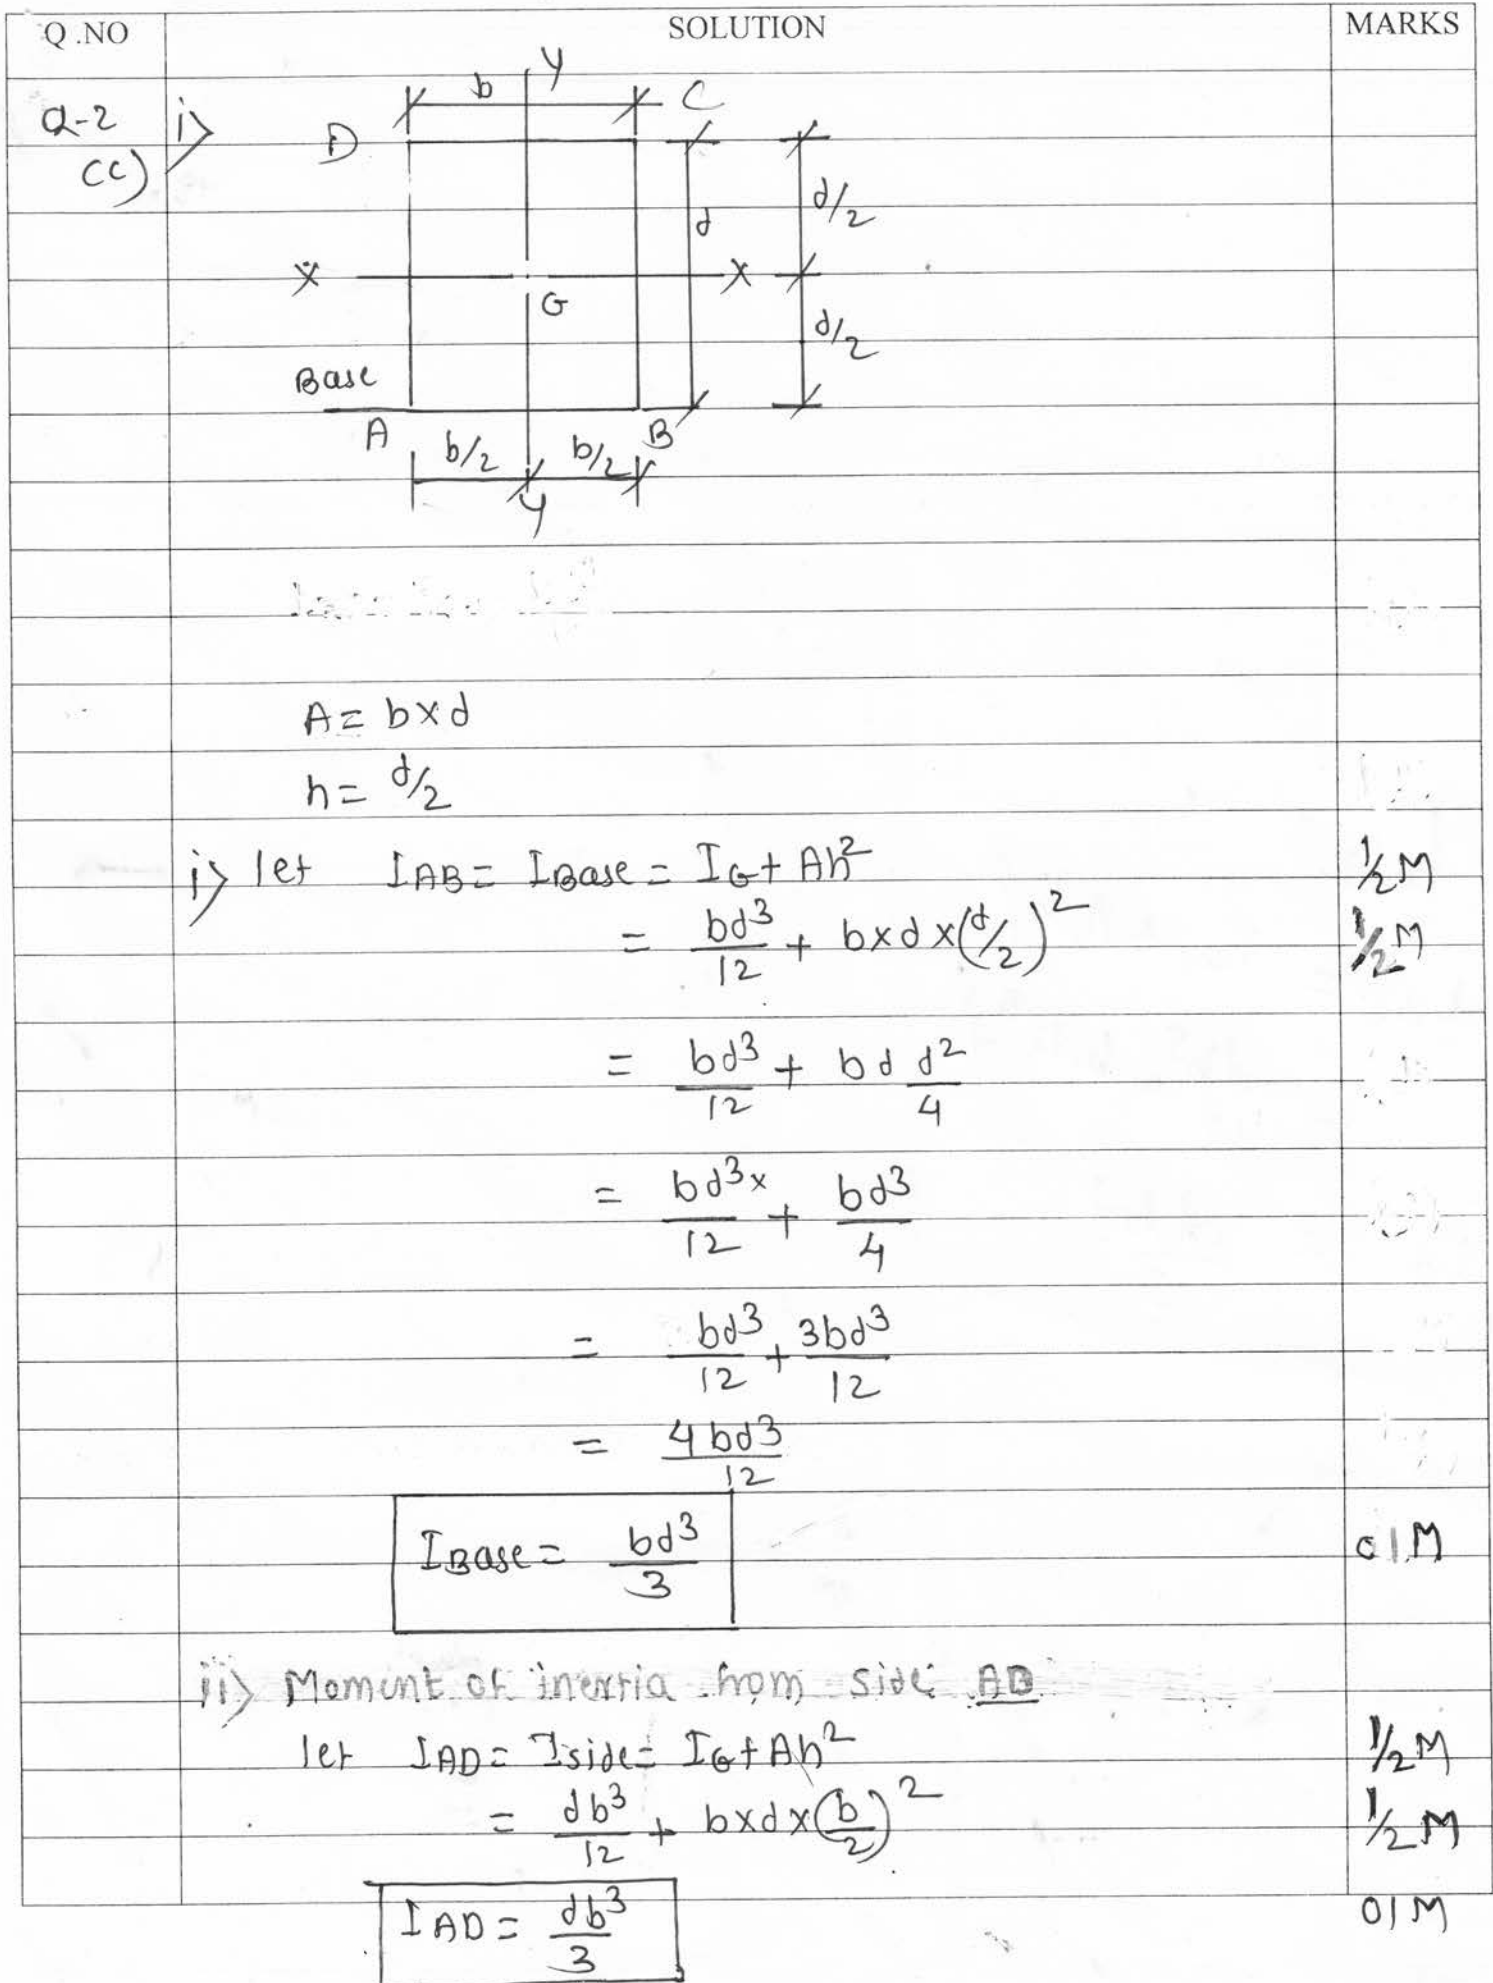 Q.NO SOLUTION MARKS
Q-2 i>
(C)
b y C
D
d d/2
X X
G
d/2
Base
A B
b/2 b/2
y
A = b×d
h = d/2
i> let IAB = IBase = IG + Ah² ½M
= bd³/12 + b×d×(d/2)² ½M
= bd³/12 + bd d²/4
= bd³×/12 + bd³/4
= bd³/12 + 3bd³/12
= 4bd³/12
IBase = bd³/3 01M
ii> Moment of inertia from side AD
let IAD = Iside = IG + Ah² ½M
= db³/12 + b×d×(b/2)² ½M
IAD = db³/3 01M